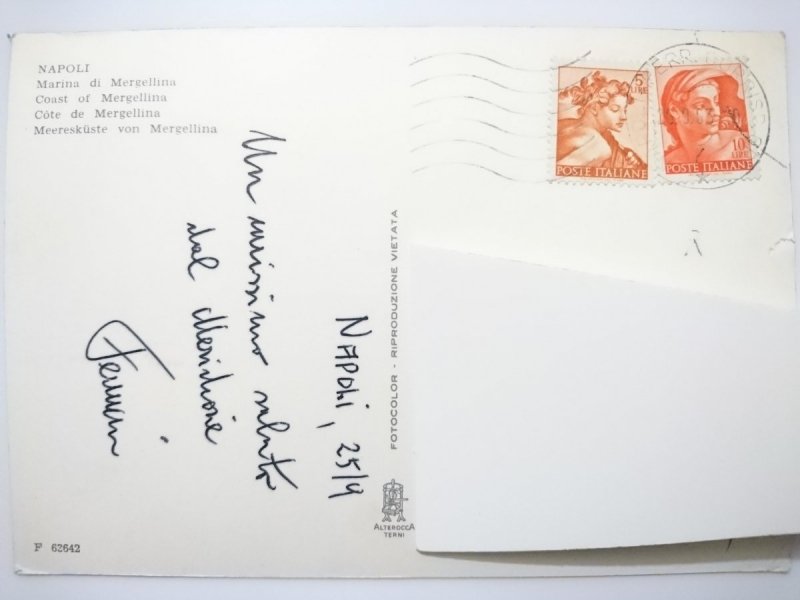 NAPOLI
Marina di Mergellina
Coast of Mergellina
Côte de Mergellina
Meeresküste von Mergellina
5
LIRE
POSTE ITALIANE
10
LIRE
POSTE ITALIANE
NAPOLI, 25/9
Un vivissimo saluto
dal Meridione
FOTOCOLOR - RIPRODUZIONE VIETATA
ALTEROCCA
TERNI
F 62642